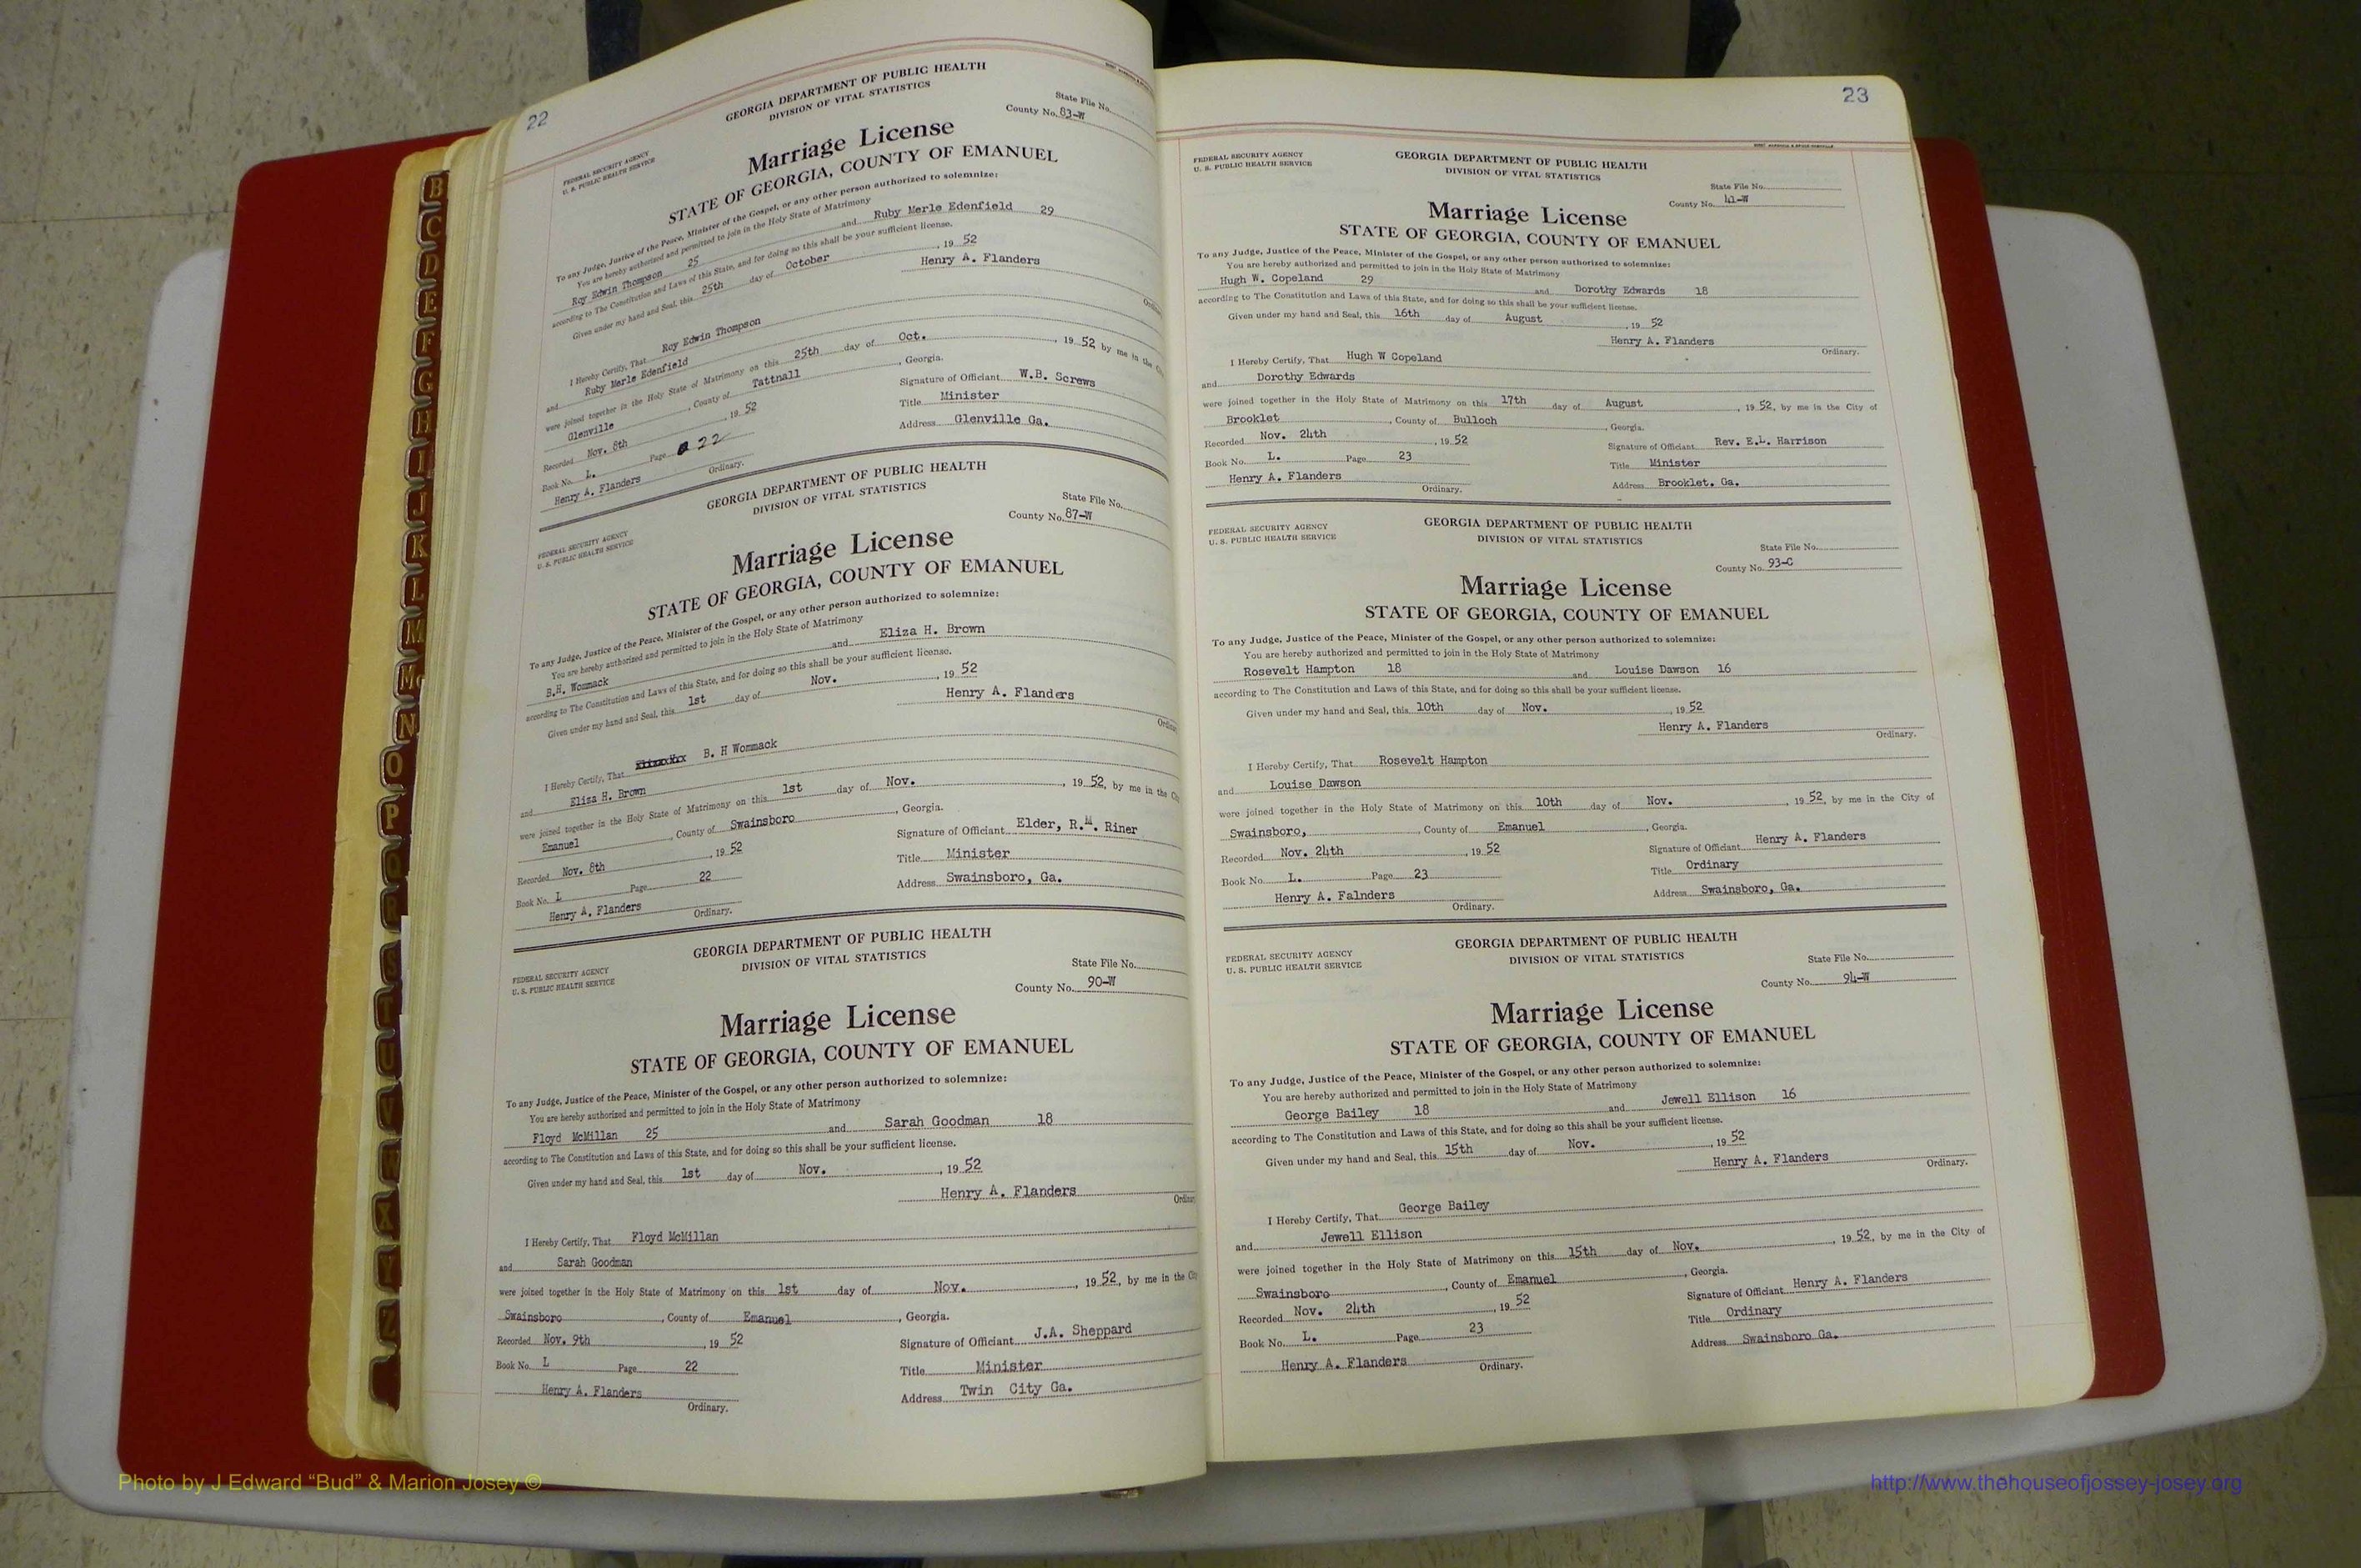 22
GEORGIA DEPARTMENT OF PUBLIC HEALTH
DIVISION OF VITAL STATISTICS
FEDERAL SECURITY AGENCY
U. S. PUBLIC HEALTH SERVICE
State File No.
County No. 83-W
Marriage License
STATE OF GEORGIA, COUNTY OF EMANUEL
To any Judge, Justice of the Peace, Minister of the Gospel, or any other person authorized to solemnize:
You are hereby authorized and permitted to join in the Holy State of Matrimony
Roy Edwin Thompson 25 and Ruby Merle Edenfield 29
according to The Constitution and Laws of this State, and for doing so this shall be your sufficient license.
Given under my hand and Seal, this 25th day of October, 19 52
Henry A. Flanders
Ordinary
I Hereby Certify, That Roy Edwin Thompson
and Ruby Merle Edenfield
were joined together in the Holy State of Matrimony on this 25th day of Oct., 19 52 by me in the
Glenville, County of Tattnall, Georgia.
Recorded Nov. 8th, 19 52
Signature of Officiant W.B. Screws
Book No. L. Page 22
Title Minister
Henry A. Flanders Ordinary.
Address Glenville Ga.
GEORGIA DEPARTMENT OF PUBLIC HEALTH
DIVISION OF VITAL STATISTICS
FEDERAL SECURITY AGENCY
U. S. PUBLIC HEALTH SERVICE
State File No.
County No. 87-W
Marriage License
STATE OF GEORGIA, COUNTY OF EMANUEL
To any Judge, Justice of the Peace, Minister of the Gospel, or any other person authorized to solemnize:
You are hereby authorized and permitted to join in the Holy State of Matrimony
B.H. Wommack and Eliza H. Brown
according to The Constitution and Laws of this State, and for doing so this shall be your sufficient license.
Given under my hand and Seal, this 1st day of Nov., 19 52
Henry A. Flanders
I Hereby Certify, That B. H Wommack
and Eliza H. Brown
were joined together in the Holy State of Matrimony on this 1st day of Nov., 19 52, by me in the
Emanuel, County of Swainsboro, Georgia.
Recorded Nov. 8th, 19 52
Signature of Officiant Elder, R.M. Riner
Book No. L Page 22
Title Minister
Henry A. Flanders Ordinary.
Address Swainsboro, Ga.
GEORGIA DEPARTMENT OF PUBLIC HEALTH
DIVISION OF VITAL STATISTICS
FEDERAL SECURITY AGENCY
U. S. PUBLIC HEALTH SERVICE
State File No.
County No. 90-W
Marriage License
STATE OF GEORGIA, COUNTY OF EMANUEL
To any Judge, Justice of the Peace, Minister of the Gospel, or any other person authorized to solemnize:
You are hereby authorized and permitted to join in the Holy State of Matrimony
Floyd McMillan 25 and Sarah Goodman 18
according to The Constitution and Laws of this State, and for doing so this shall be your sufficient license.
Given under my hand and Seal, this 1st day of Nov., 19 52
Henry A. Flanders
I Hereby Certify, That Floyd McMillan
and Sarah Goodman
were joined together in the Holy State of Matrimony on this 1st day of Nov., 19 52, by me in the
Swainsboro, County of Emanuel, Georgia.
Recorded Nov. 9th, 19 52
Signature of Officiant J.A. Sheppard
Book No. L Page 22
Title Minister
Henry A. Flanders
Ordinary.
Address Twin City Ga.
23
FEDERAL SECURITY AGENCY
U. S. PUBLIC HEALTH SERVICE
GEORGIA DEPARTMENT OF PUBLIC HEALTH
DIVISION OF VITAL STATISTICS
State File No.
County No. 41-W
Marriage License
STATE OF GEORGIA, COUNTY OF EMANUEL
To any Judge, Justice of the Peace, Minister of the Gospel, or any other person authorized to solemnize:
You are hereby authorized and permitted to join in the Holy State of Matrimony
Hugh W. Copeland 29 and Dorothy Edwards 18
according to The Constitution and Laws of this State, and for doing so this shall be your sufficient license.
Given under my hand and Seal, this 16th day of August, 19 52
Henry A. Flanders
Ordinary.
I Hereby Certify, That Hugh W Copeland
and Dorothy Edwards
were joined together in the Holy State of Matrimony on this 17th day of August, 19 52, by me in the City of
Brooklet, County of Bulloch, Georgia.
Recorded Nov. 24th, 19 52
Signature of Officiant Rev. E.L. Harrison
Book No. L. Page 23
Title Minister
Henry A. Flanders
Ordinary.
Address Brooklet. Ga.
FEDERAL SECURITY AGENCY
U. S. PUBLIC HEALTH SERVICE
GEORGIA DEPARTMENT OF PUBLIC HEALTH
DIVISION OF VITAL STATISTICS
State File No.
County No. 93-C
Marriage License
STATE OF GEORGIA, COUNTY OF EMANUEL
To any Judge, Justice of the Peace, Minister of the Gospel, or any other person authorized to solemnize:
You are hereby authorized and permitted to join in the Holy State of Matrimony
Rosevelt Hampton 18 and Louise Dawson 16
according to The Constitution and Laws of this State, and for doing so this shall be your sufficient license.
Given under my hand and Seal, this 10th day of Nov., 19 52
Henry A. Flanders
Ordinary.
I Hereby Certify, That Rosevelt Hampton
and Louise Dawson
were joined together in the Holy State of Matrimony on this 10th day of Nov., 19 52, by me in the City of
Swainsboro, County of Emanuel, Georgia.
Recorded Nov. 24th, 19 52
Signature of Officiant Henry A. Flanders
Book No. L. Page 23
Title Ordinary
Henry A. Falnders
Ordinary.
Address Swainsboro, Ga.
FEDERAL SECURITY AGENCY
U. S. PUBLIC HEALTH SERVICE
GEORGIA DEPARTMENT OF PUBLIC HEALTH
DIVISION OF VITAL STATISTICS
State File No.
County No. 94-W
Marriage License
STATE OF GEORGIA, COUNTY OF EMANUEL
To any Judge, Justice of the Peace, Minister of the Gospel, or any other person authorized to solemnize:
You are hereby authorized and permitted to join in the Holy State of Matrimony
George Bailey 18 and Jewell Ellison 16
according to The Constitution and Laws of this State, and for doing so this shall be your sufficient license.
Given under my hand and Seal, this 15th day of Nov., 19 52
Henry A. Flanders
Ordinary.
I Hereby Certify, That George Bailey
and Jewell Ellison
were joined together in the Holy State of Matrimony on this 15th day of Nov., 19 52, by me in the City of
Swainsboro, County of Emanuel, Georgia.
Recorded Nov. 24th, 19 52
Signature of Officiant Henry A. Flanders
Book No. L. Page 23
Title Ordinary
Henry A. Flanders
Ordinary.
Address Swainsboro Ga.
B
C
D
E
F
G
H
I
J
K
L
M
Mc
N
O
P
Q
R
S
T
U
V
W
X
Y
Z
Photo by J Edward “Bud” & Marion Josey ©
http://www.thehouseofjossey-josey.org